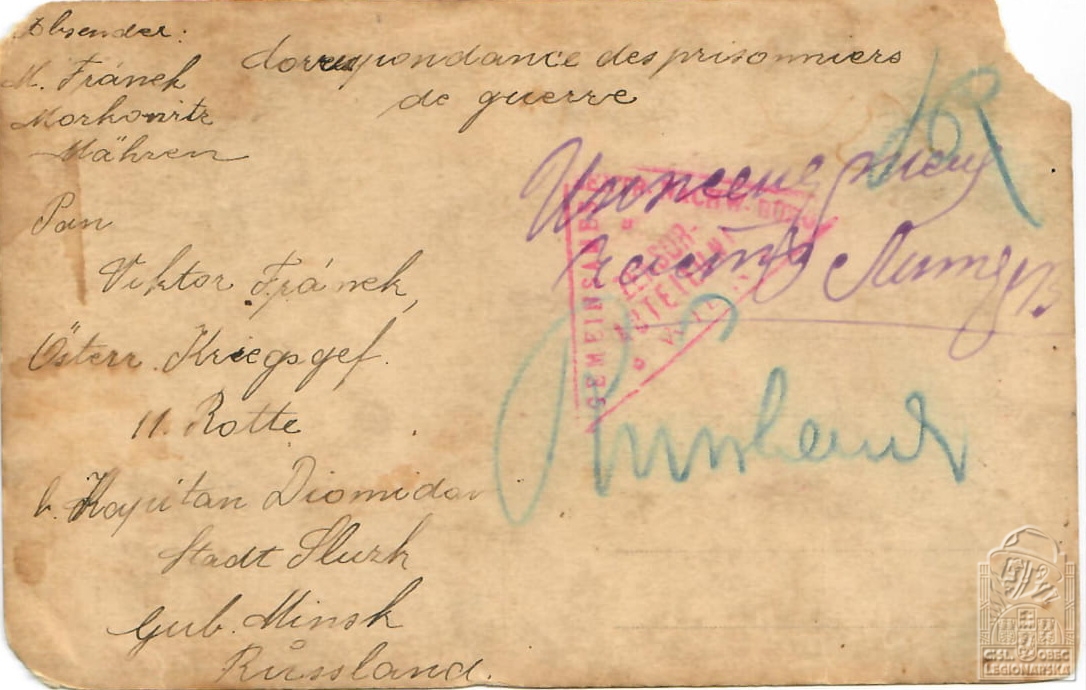 Absender:
M. Fránek
Morkowitz
Mähren
Correspondance des prisonniers
de guerre
Pan
Viktor Fránek,
Österr. Kriegsgef.
11. Rotte
b. Kapitan Diomidov
Stadt Sluzk
Gub. Minsk
Rŭssland.
GEMEINSAMES
ZENSUR-
ABTEILUNG
Russland
ČSL. OBEC
LEGIONÁŘSKÁ